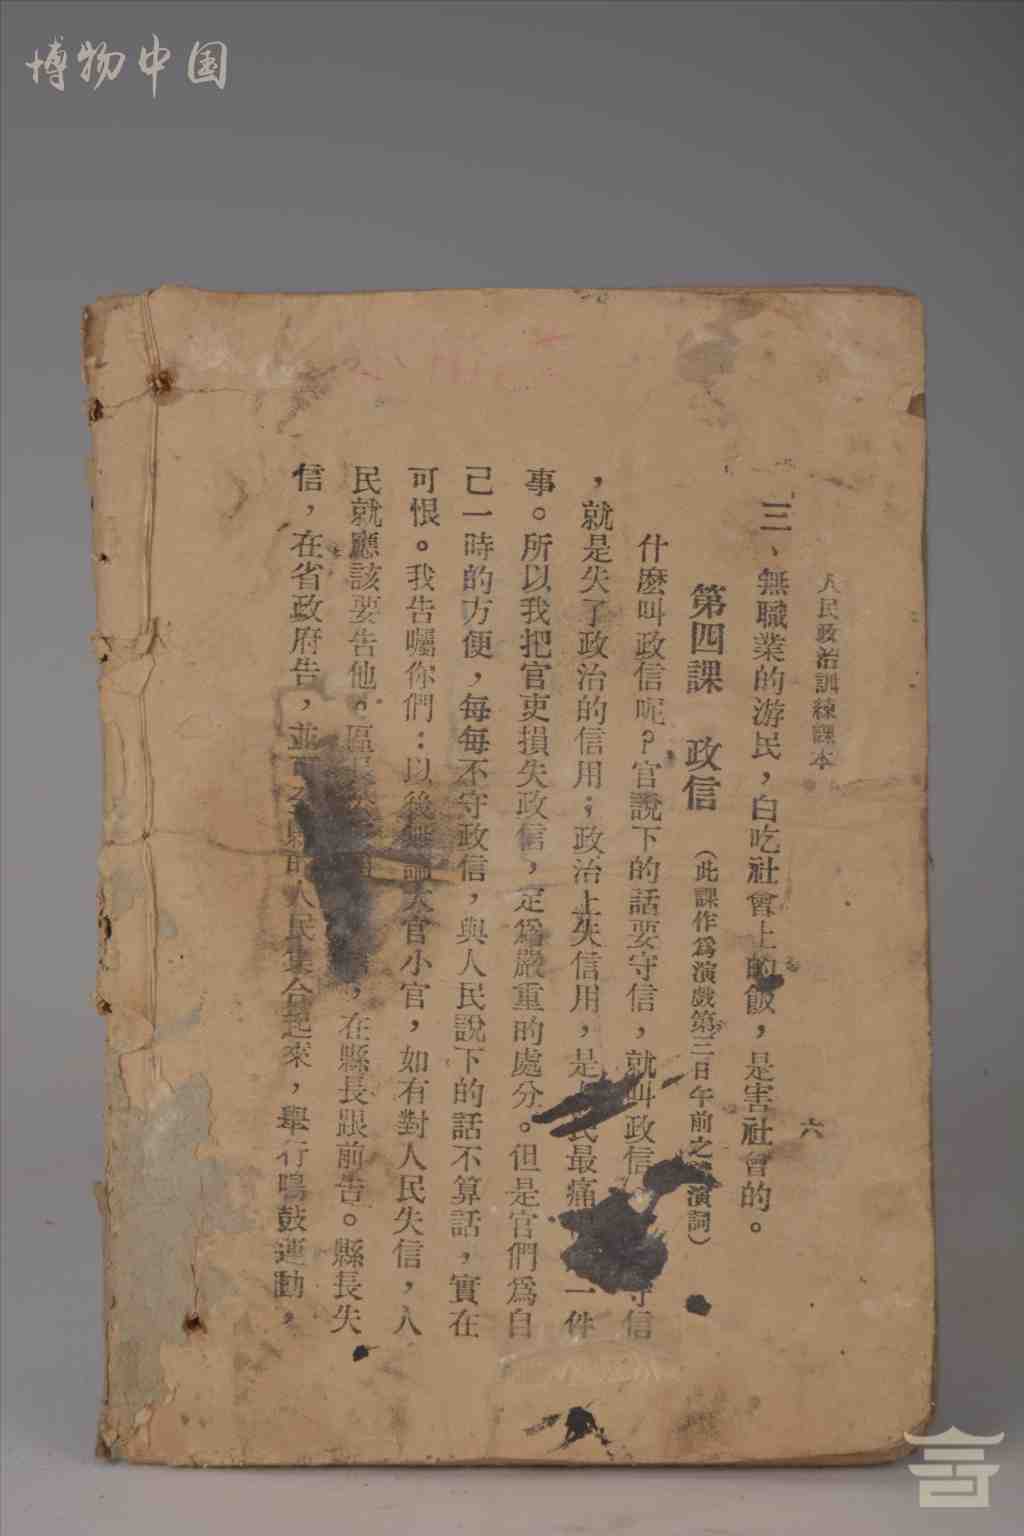 博物中国
人民政治訓練課本
六
三、無職業的游民，白吃社會上的飯，是害社會的。
第四課　政信　（此課作為演戲第三日午前之　演詞）
什麼叫政信呢？官說下的話要守信，就叫政信　守信
，就是失了政治的信用；政治上失信用，是　民最痛　一件
事。所以我把官吏損失政信，定為嚴重的處分。但是官們為自
己一時的方便，每每不守政信，與人民說下的話不算話，實在
可恨。我告囑你們：以後無論大官小官，如有對人民失信，人
民就應該要告他。區長　，在縣長跟前告。縣長失
信，在省政府告，並　人民集合起來，舉行鳴鼓運動，